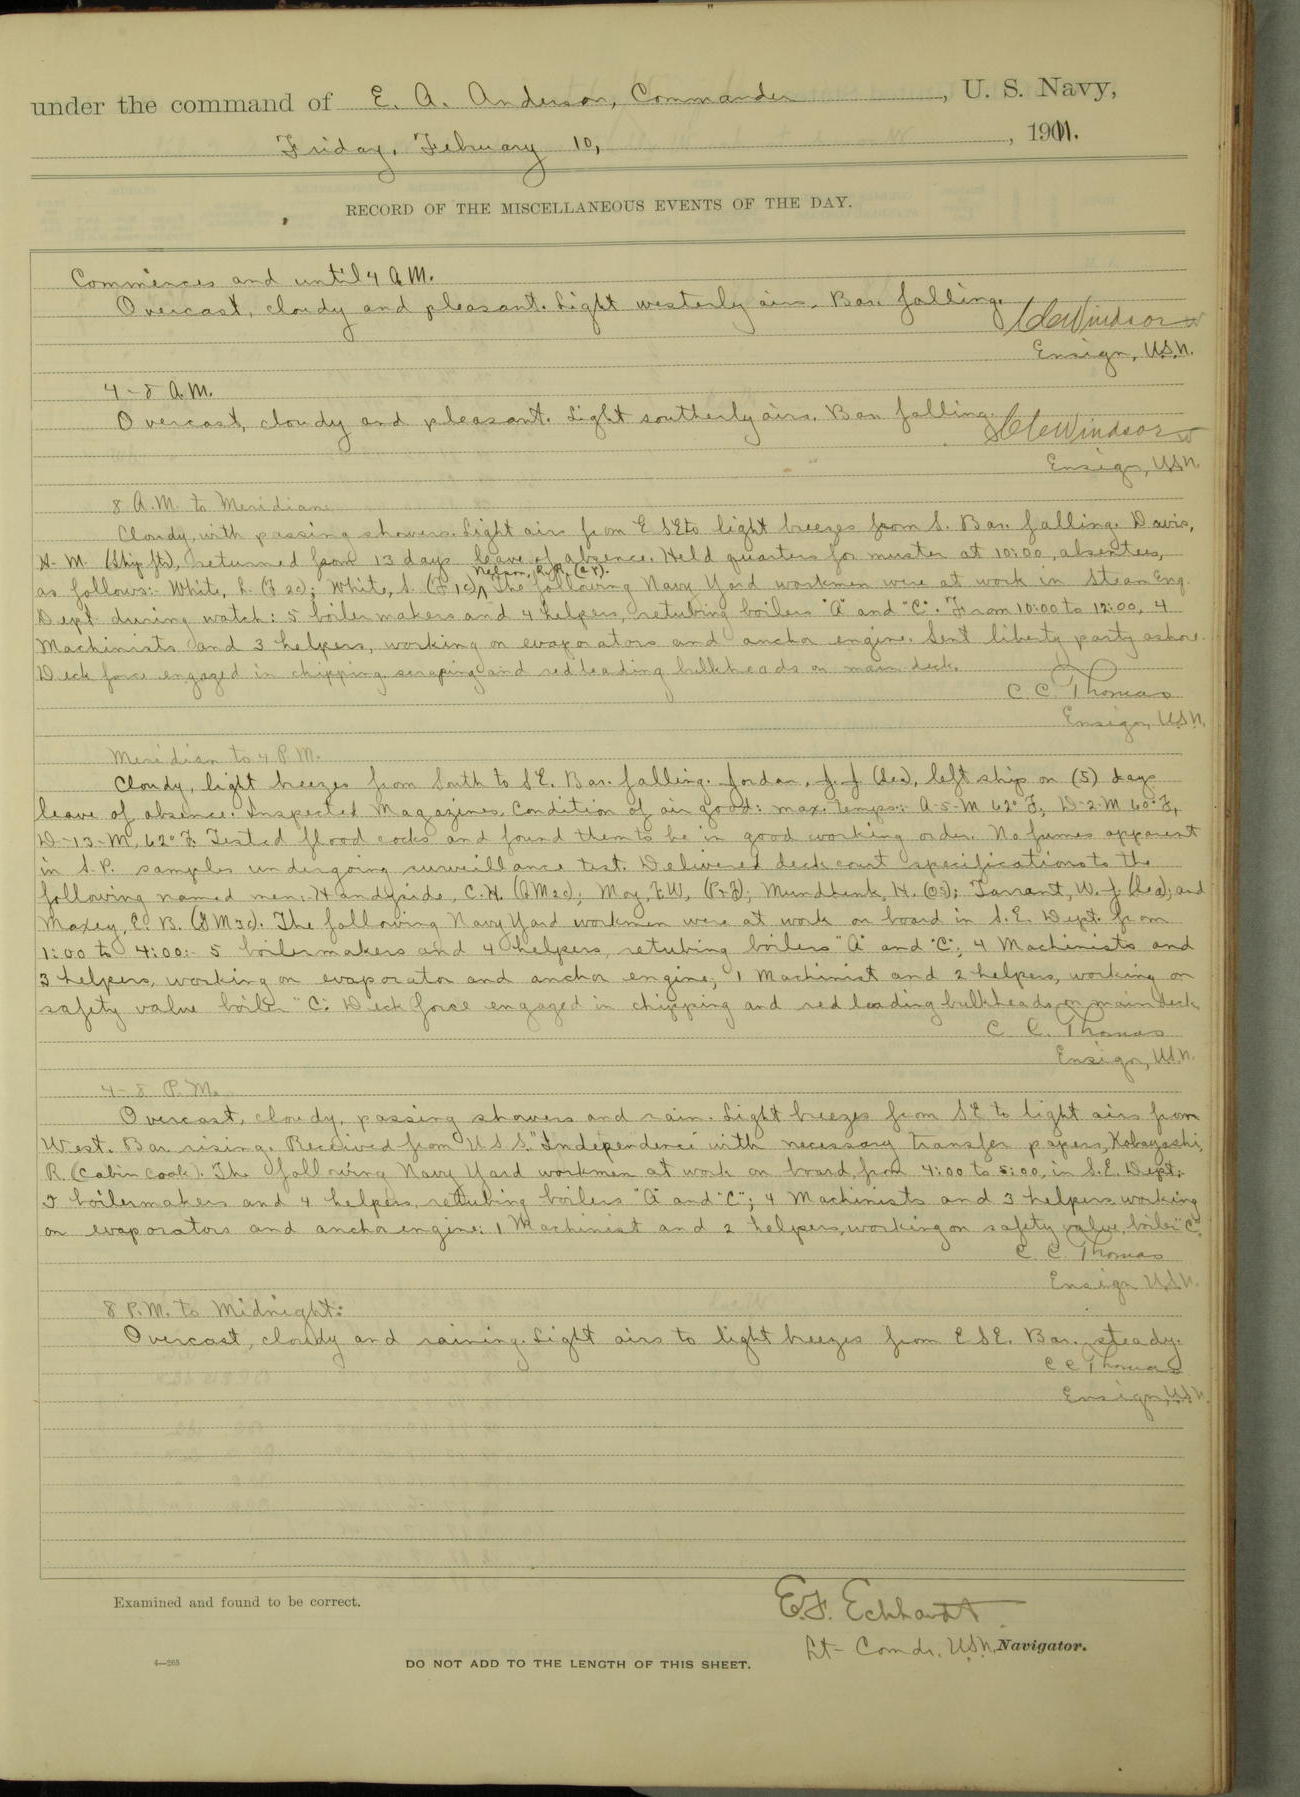 under the command of E. A. Anderson, Commander, U. S. Navy,
Friday, February 10, 1911.
RECORD OF THE MISCELLANEOUS EVENTS OF THE DAY.
Commences and until 4 A.M.
Overcast, cloudy and pleasant. Light westerly airs. Bar. falling.
Windsor
Ensign, U.S.N.
4-8 A.M.
Overcast, cloudy and pleasant. Light southerly airs. Bar. falling.
Windsor
Ensign, U.S.N.
8 A.M. to Meridian
Cloudy, with passing showers. Light airs from E SE to light breezes from S. Bar. falling. Davis,
H. M. (Ship ftr), returned from 13 days leave of absence. Held quarters for muster at 10:00, absentees,
Nelson, R.R. (C.P.).
as follows:- White, L. (F 2c); White, S. (F 1c)^ The following Navy Yard workmen were at work in Steam Eng.
Dept. during watch: 5 boilermakers and 4 helpers, retubing boilers "A" and "C". From 10:00 to 12:00, 4
Machinists and 3 helpers, working on evaporators and anchor engine. Sent liberty party ashore.
Deck force engaged in chipping scraping and redleading bulkheads on main deck.
C C Thomas
Ensign, U.S.N.
Meridian to 4 P.M.
Cloudy, light breezes from South to SE. Bar. falling. Jordan, J. J. (Sea), left ship on (5) days
leave of absence. Inspected Magazines, Condition of air good: max. temps:- A-5-M 62° F, D-2-M 60° F,
D-13-M, 62° F. Tested flood cocks and found them to be in good working order. No fumes apparent
in S.P. samples undergoing surveillance test. Delivered deck court specifications to the
following named men: Handyside, C.H. (GM2c); Moy, F.W, Mundhenk, H. (OS); Tarrant, W. J. (Sea); and
Maxey, C. B. (GM3c). The following Navy Yard workmen were at work on board in S.E. Dept. from
1:00 to 4:00:- 5 boilermakers and 4 helpers, retubing boilers "A" and "C"; 4 Machinists and
3 helpers, working on evaporator and anchor engine; 1 Machinist and 2 helpers, working on
safety valve boiler "C". Deck force engaged in chipping and red leading bulkheads on main deck
C. C. Thomas
Ensign, U.S.N.
4-8 P.M.
Overcast, cloudy, passing showers and rain. Light breezes from SE to light airs from
West. Bar. rising. Received from U S S. "Independence" with necessary transfer papers, Kobayashi,
R. (Cabin Cook). The following Navy Yard workmen at work on board, from 4:00 to 5:00, in S.E. Dept:
5 boilermakers and 4 helpers, retubing boilers "A" and "C"; 4 Machinists and 3 helpers working
on evaporators and anchor engine: 1 Machinist and 2 helpers, working on safety valve, boiler "C".
C. C. Thomas
Ensign U.S.N.
8 P.M. to Midnight:
Overcast, cloudy and raining. Light airs to light breezes from E SE. Bar. steady.
C C Thomas
Ensign, U.S.N.
Examined and found to be correct.
E.F. Eckhardt
Lt-Comdr. U.S.N. Navigator.
4—265
DO NOT ADD TO THE LENGTH OF THIS SHEET.